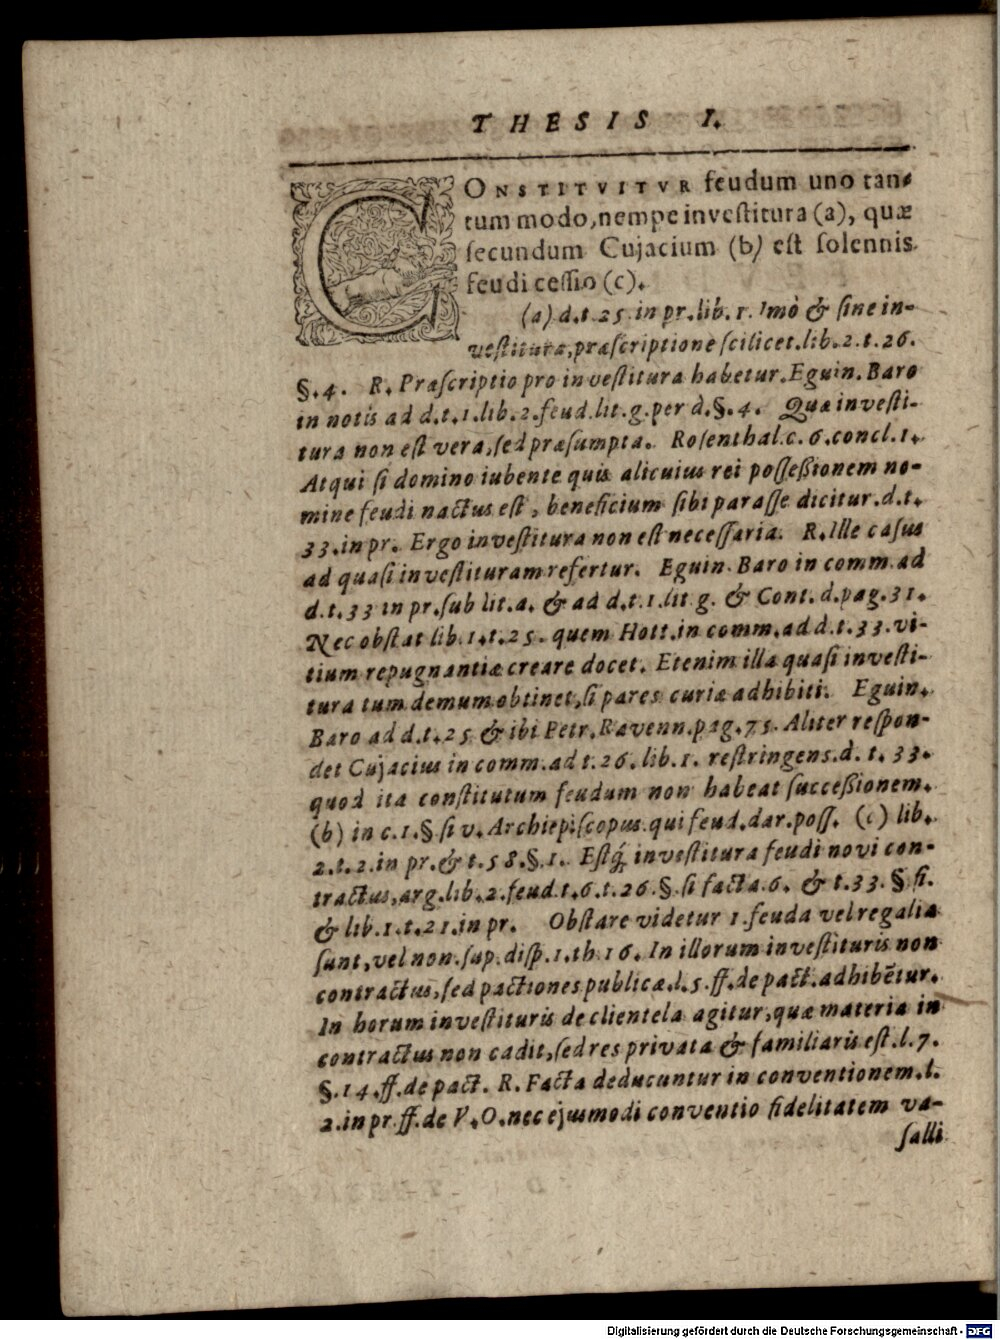 THESIS I.
CONSTITVITVR feudum uno tan-
tum modo, nempe investitura (a), quæ
secundum Cujacium (b) est solennis
feudi cessio (c).
(a) d.t.25. in pr. lib. 1. Imò & sine in-
vestitura, præscriptione scilicet. lib. 2. t. 26.
§. 4. R. Præscriptio pro investitura habetur. Eguin. Baro
in notis ad d.t.1. lib. 2. feud. lit. g. per d. §. 4. Quæ investi-
tura non est vera, sed præsumpta. Rosenthal. c. 6. concl. 1.
Atqui si domino iubente quis alicuius rei possessionem no-
mine feudi nactus est, beneficium sibi parasse dicitur. d.t.
33. in pr. Ergo investitura non est necessaria. R. Ille casus
ad quasi investituram refertur. Eguin. Baro in comm. ad
d.t. 33 in pr. sub lit. a. & ad d.t.1. lit g. & Cont. d. pag. 31.
Nec obstat lib. 1. t. 25. quem Hott. in comm. ad d.t. 33. vi-
tium repugnantiæ creare docet. Etenim illa quasi investi-
tura tum demum obtinet, si pares curiæ adhibiti. Eguin.
Baro ad d.t. 25 & ibi Petr. Ravenn. pag. 75. Aliter respon-
det Cujacius in comm. ad t. 26. lib. 1. restringens. d. t. 33.
quod ita constitutum feudum non habeat successionem.
(b) in c. 1. § si v. Archiepiscopus. qui feud. dar. poss. (c) lib.
2. t. 2. in pr. & t. 58. §. 1. Estq́; investitura feudi novi con-
tractus, arg. lib. 2. feud. t. 6. t. 26. §. si facta. 6. & t. 33. § si.
& lib. 1. t. 21. in pr. Obstare videtur 1. feuda vel regalia
sunt, vel non. sup. disp. 1. th. 16. In illorum investituris non
contractus, sed pactiones publicæ. l. 5. ff. de pact. adhibētur.
In horum investituris de clientela agitur, quæ materia in
contractus non cadit, sed res privata & familiaris est. l. 7.
§. 14. ff. de pact. R. Facta deducuntur in conventionem. l.
2. in pr ff. de V. O. nec ejusmodi conventio fidelitatem va-
salli
Digitalisierung gefördert durch die Deutsche Forschungsgemeinschaft - DFG